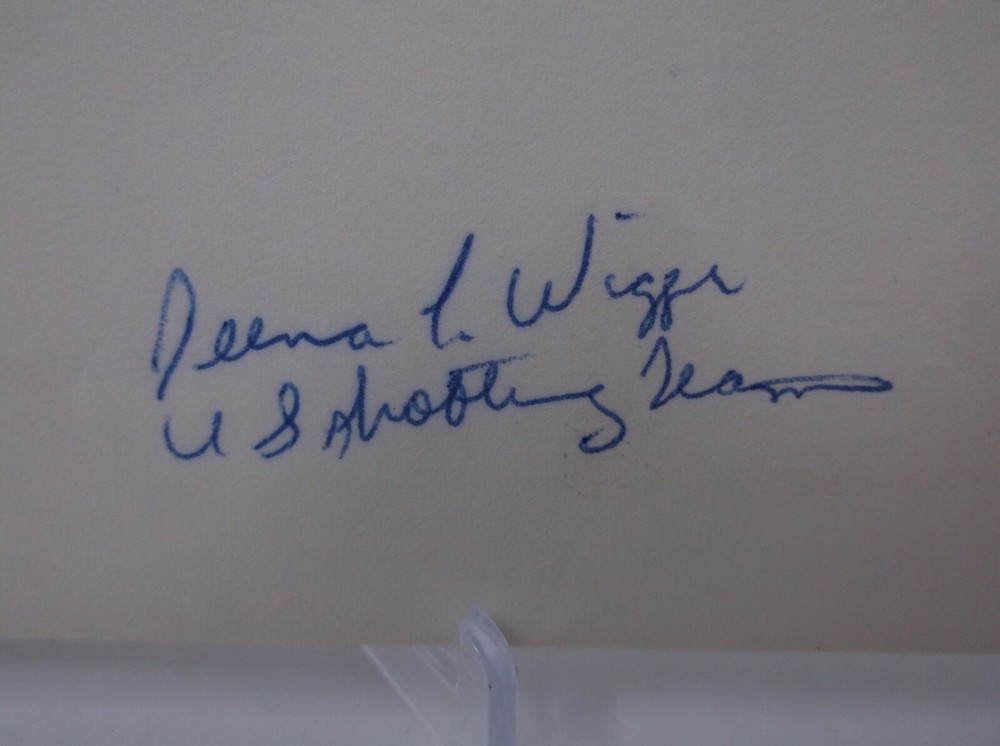 Deena L. Wigger
U S Shooting Team